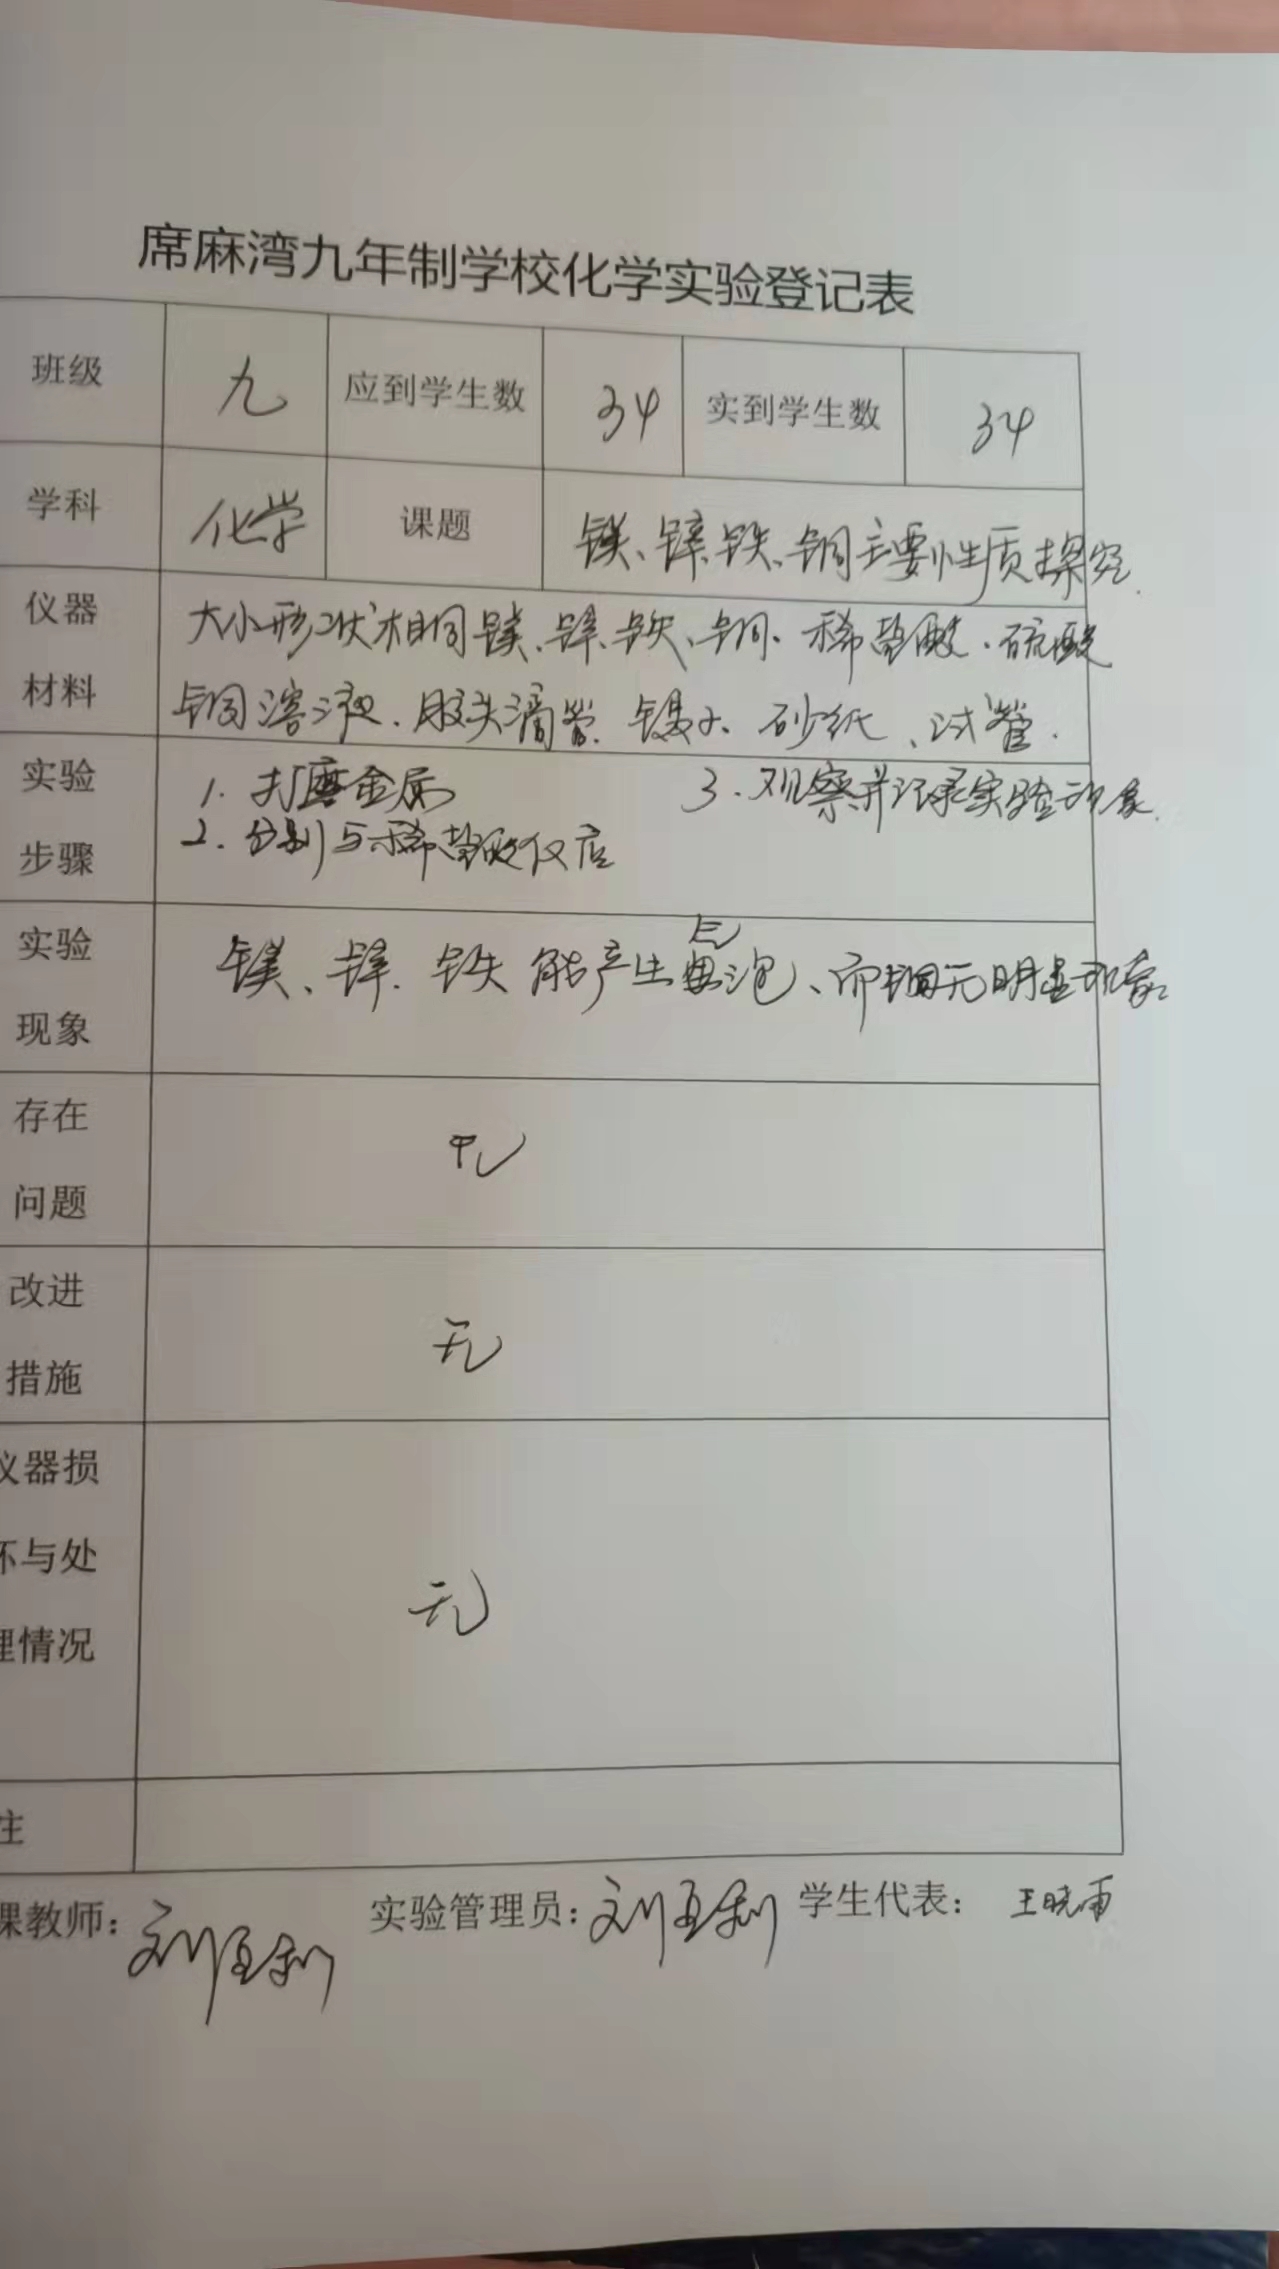 席麻湾九年制学校化学实验登记表
班级 九 应到学生数 34 实到学生数 34
学科 化学 课题 镁、锌、铁、铜主要性质探究.
仪器 大小形状相同镁、锌、铁、铜、稀盐酸、硫酸
材料 铜溶液、胶头滴管、镊子、砂纸、试管.
实验 1. 打磨金属 3. 观察并记录实验现象.
步骤 2. 分别与稀盐酸反应
实验 镁、锌、铁能产生气泡、而铜无明显现象
现象
存在 无
问题
改进 无
措施
仪器损
坏与处 无
理情况
注
课教师: 实验管理员: 学生代表: 王晓雨